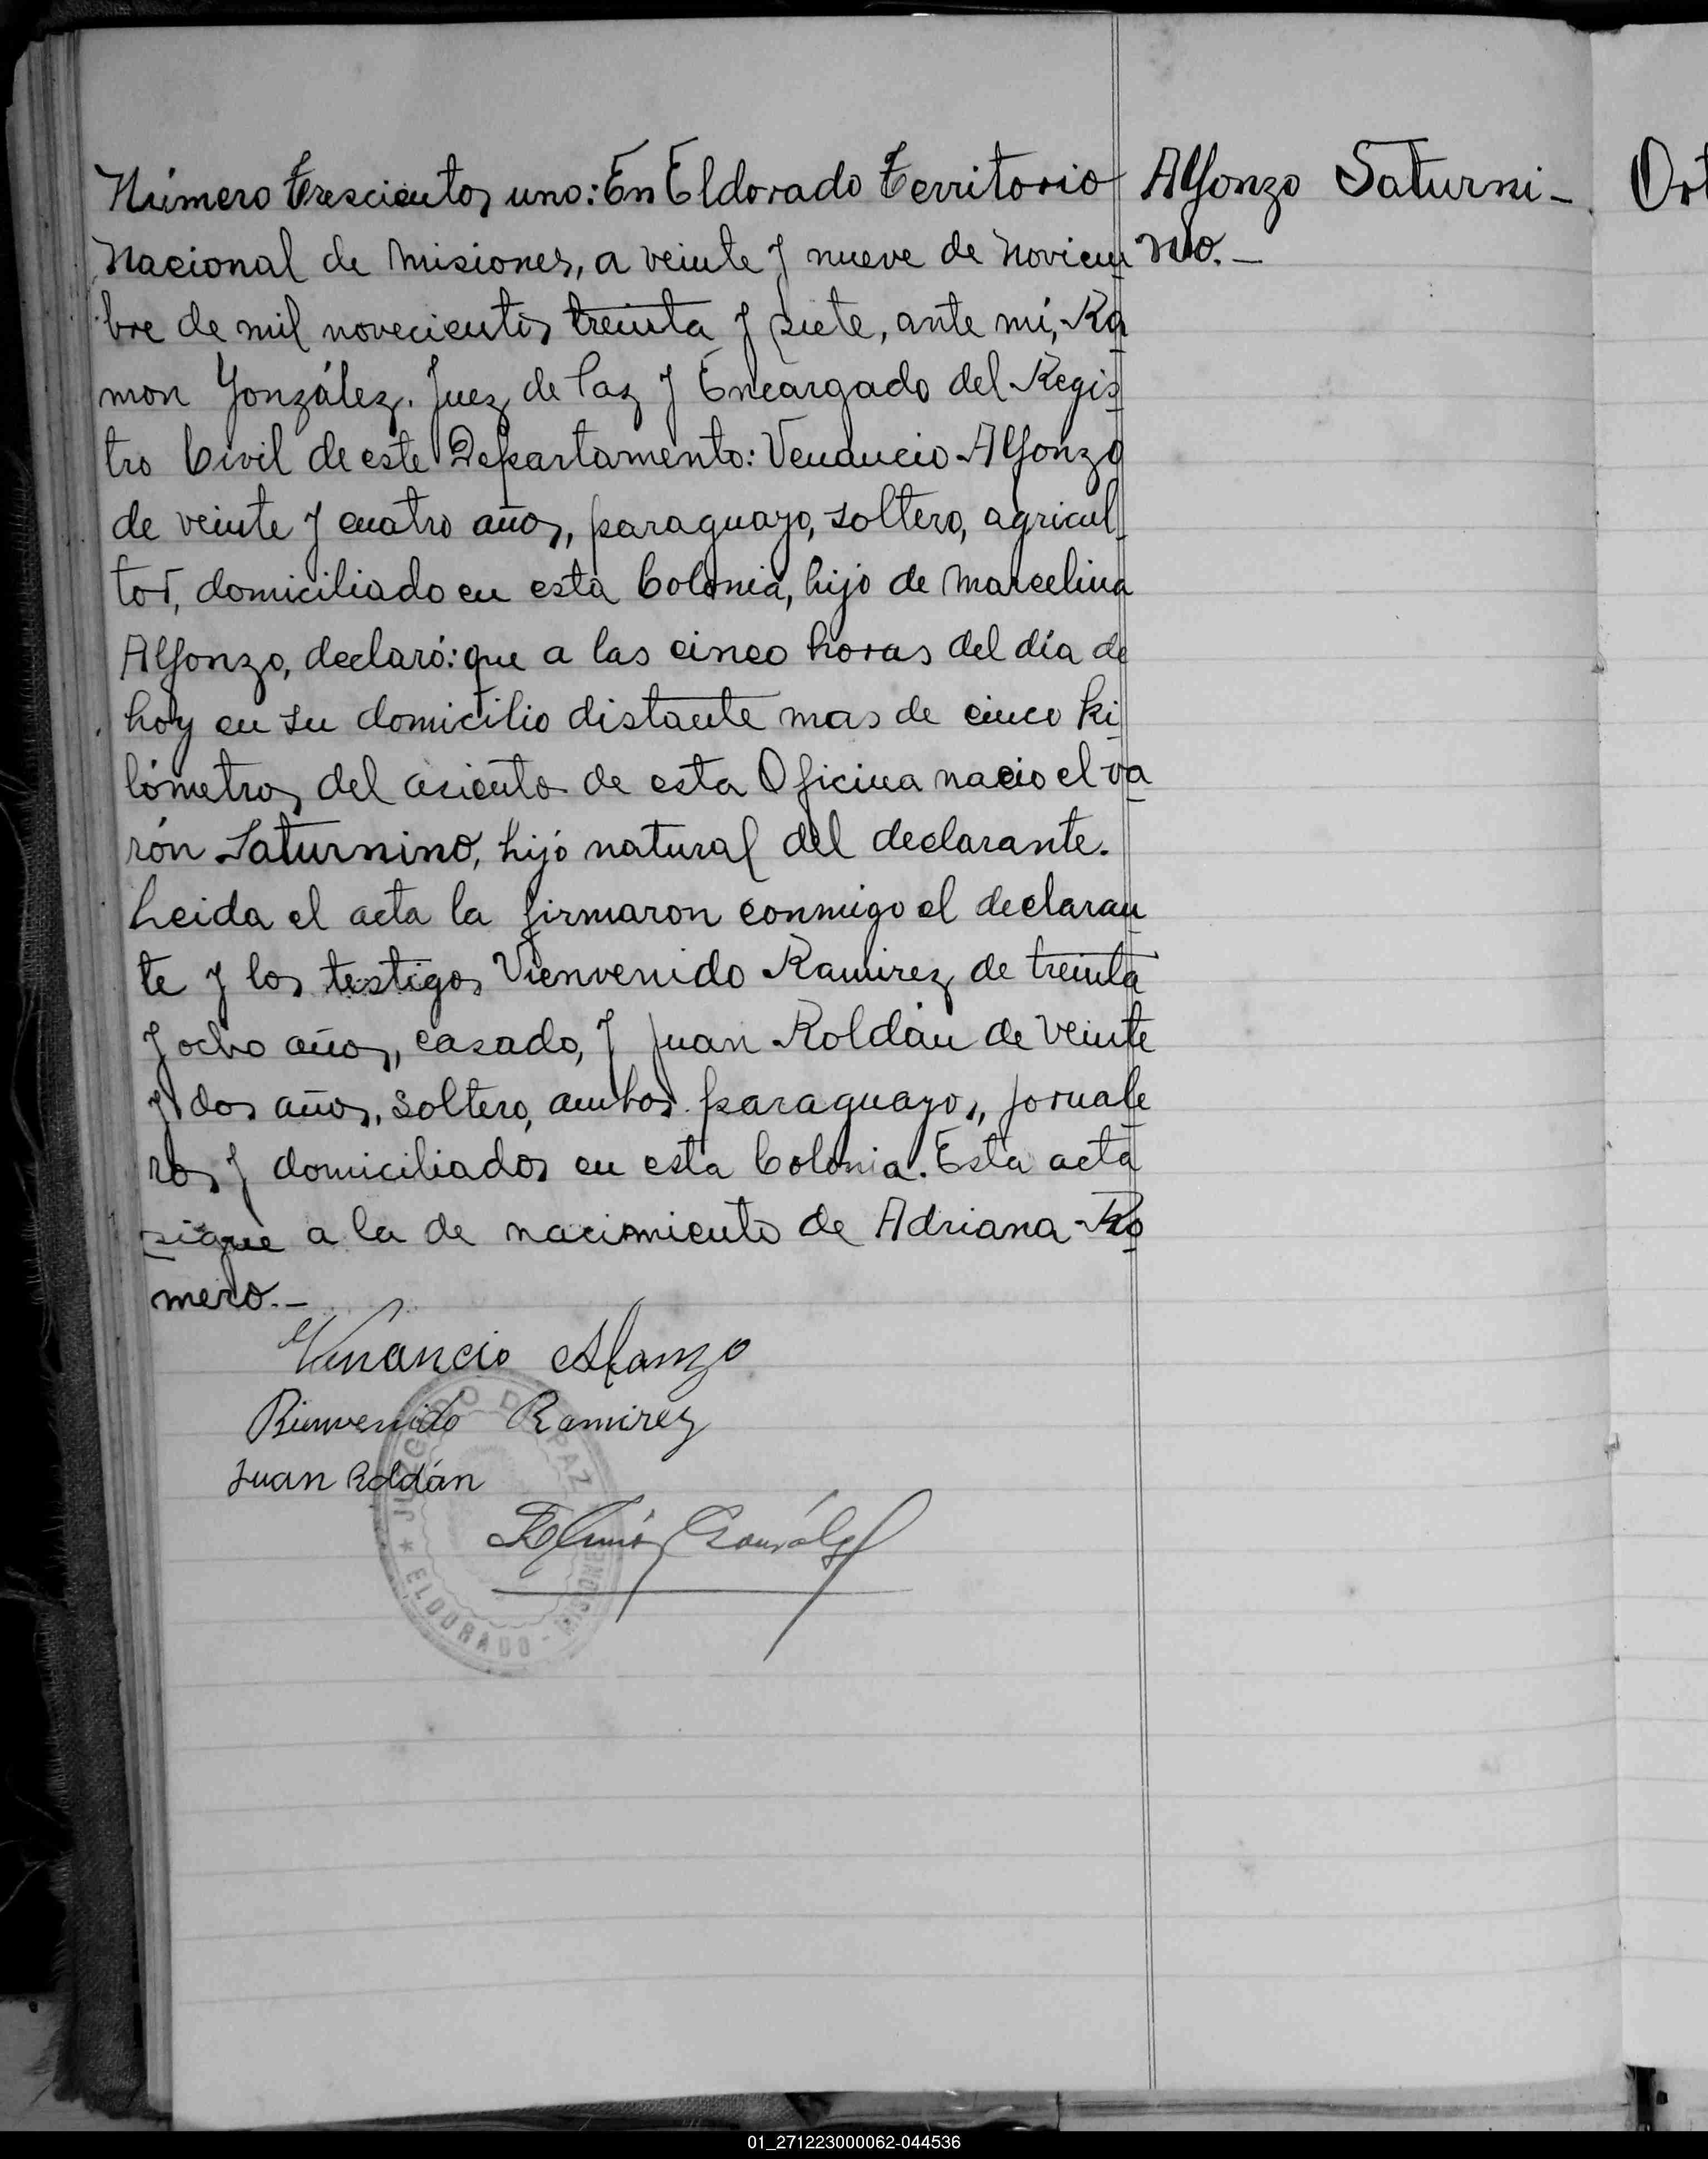 Número trescientos uno: En Eldorado Territorio
Alfonzo Saturni-
Nacional de Misiones, a veinte y nueve de Noviem
no.-
bre de mil novecientos treinta y siete, ante mí, Ra
mon González, Juez de Paz y Encargado del Regis
tro Civil de este Departamento: Venancio Alfonzo
de veinte y cuatro años, paraguayo, soltero, agricul
tor, domiciliado en esta Colonia, hijo de Marcelina
Alfonzo, declaró: que a las cinco horas del día de
hoy en su domicilio distante mas de cinco ki
lómetros del asiento de esta Oficina nacio el va
rón Saturnino, hijo natural del declarante.
Leida el acta la firmaron conmigo el declaran
te y los testigos Vienvenido Ramirez, de treinta
y ocho años, casado, y Juan Roldán de veinte
y dos años, soltero, ambos paraguayos, jornale
ros y domiciliados en esta Colonia. Esta acta
sigue a la de nacimiento de Adriana Ro
mero.-
Venancio Alfonzo
Bienvenido Ramirez
Juan Roldán
Ramón González
JUZGADO DE PAZ
* ELDORADO - MISIONES
01_271223000062-044536